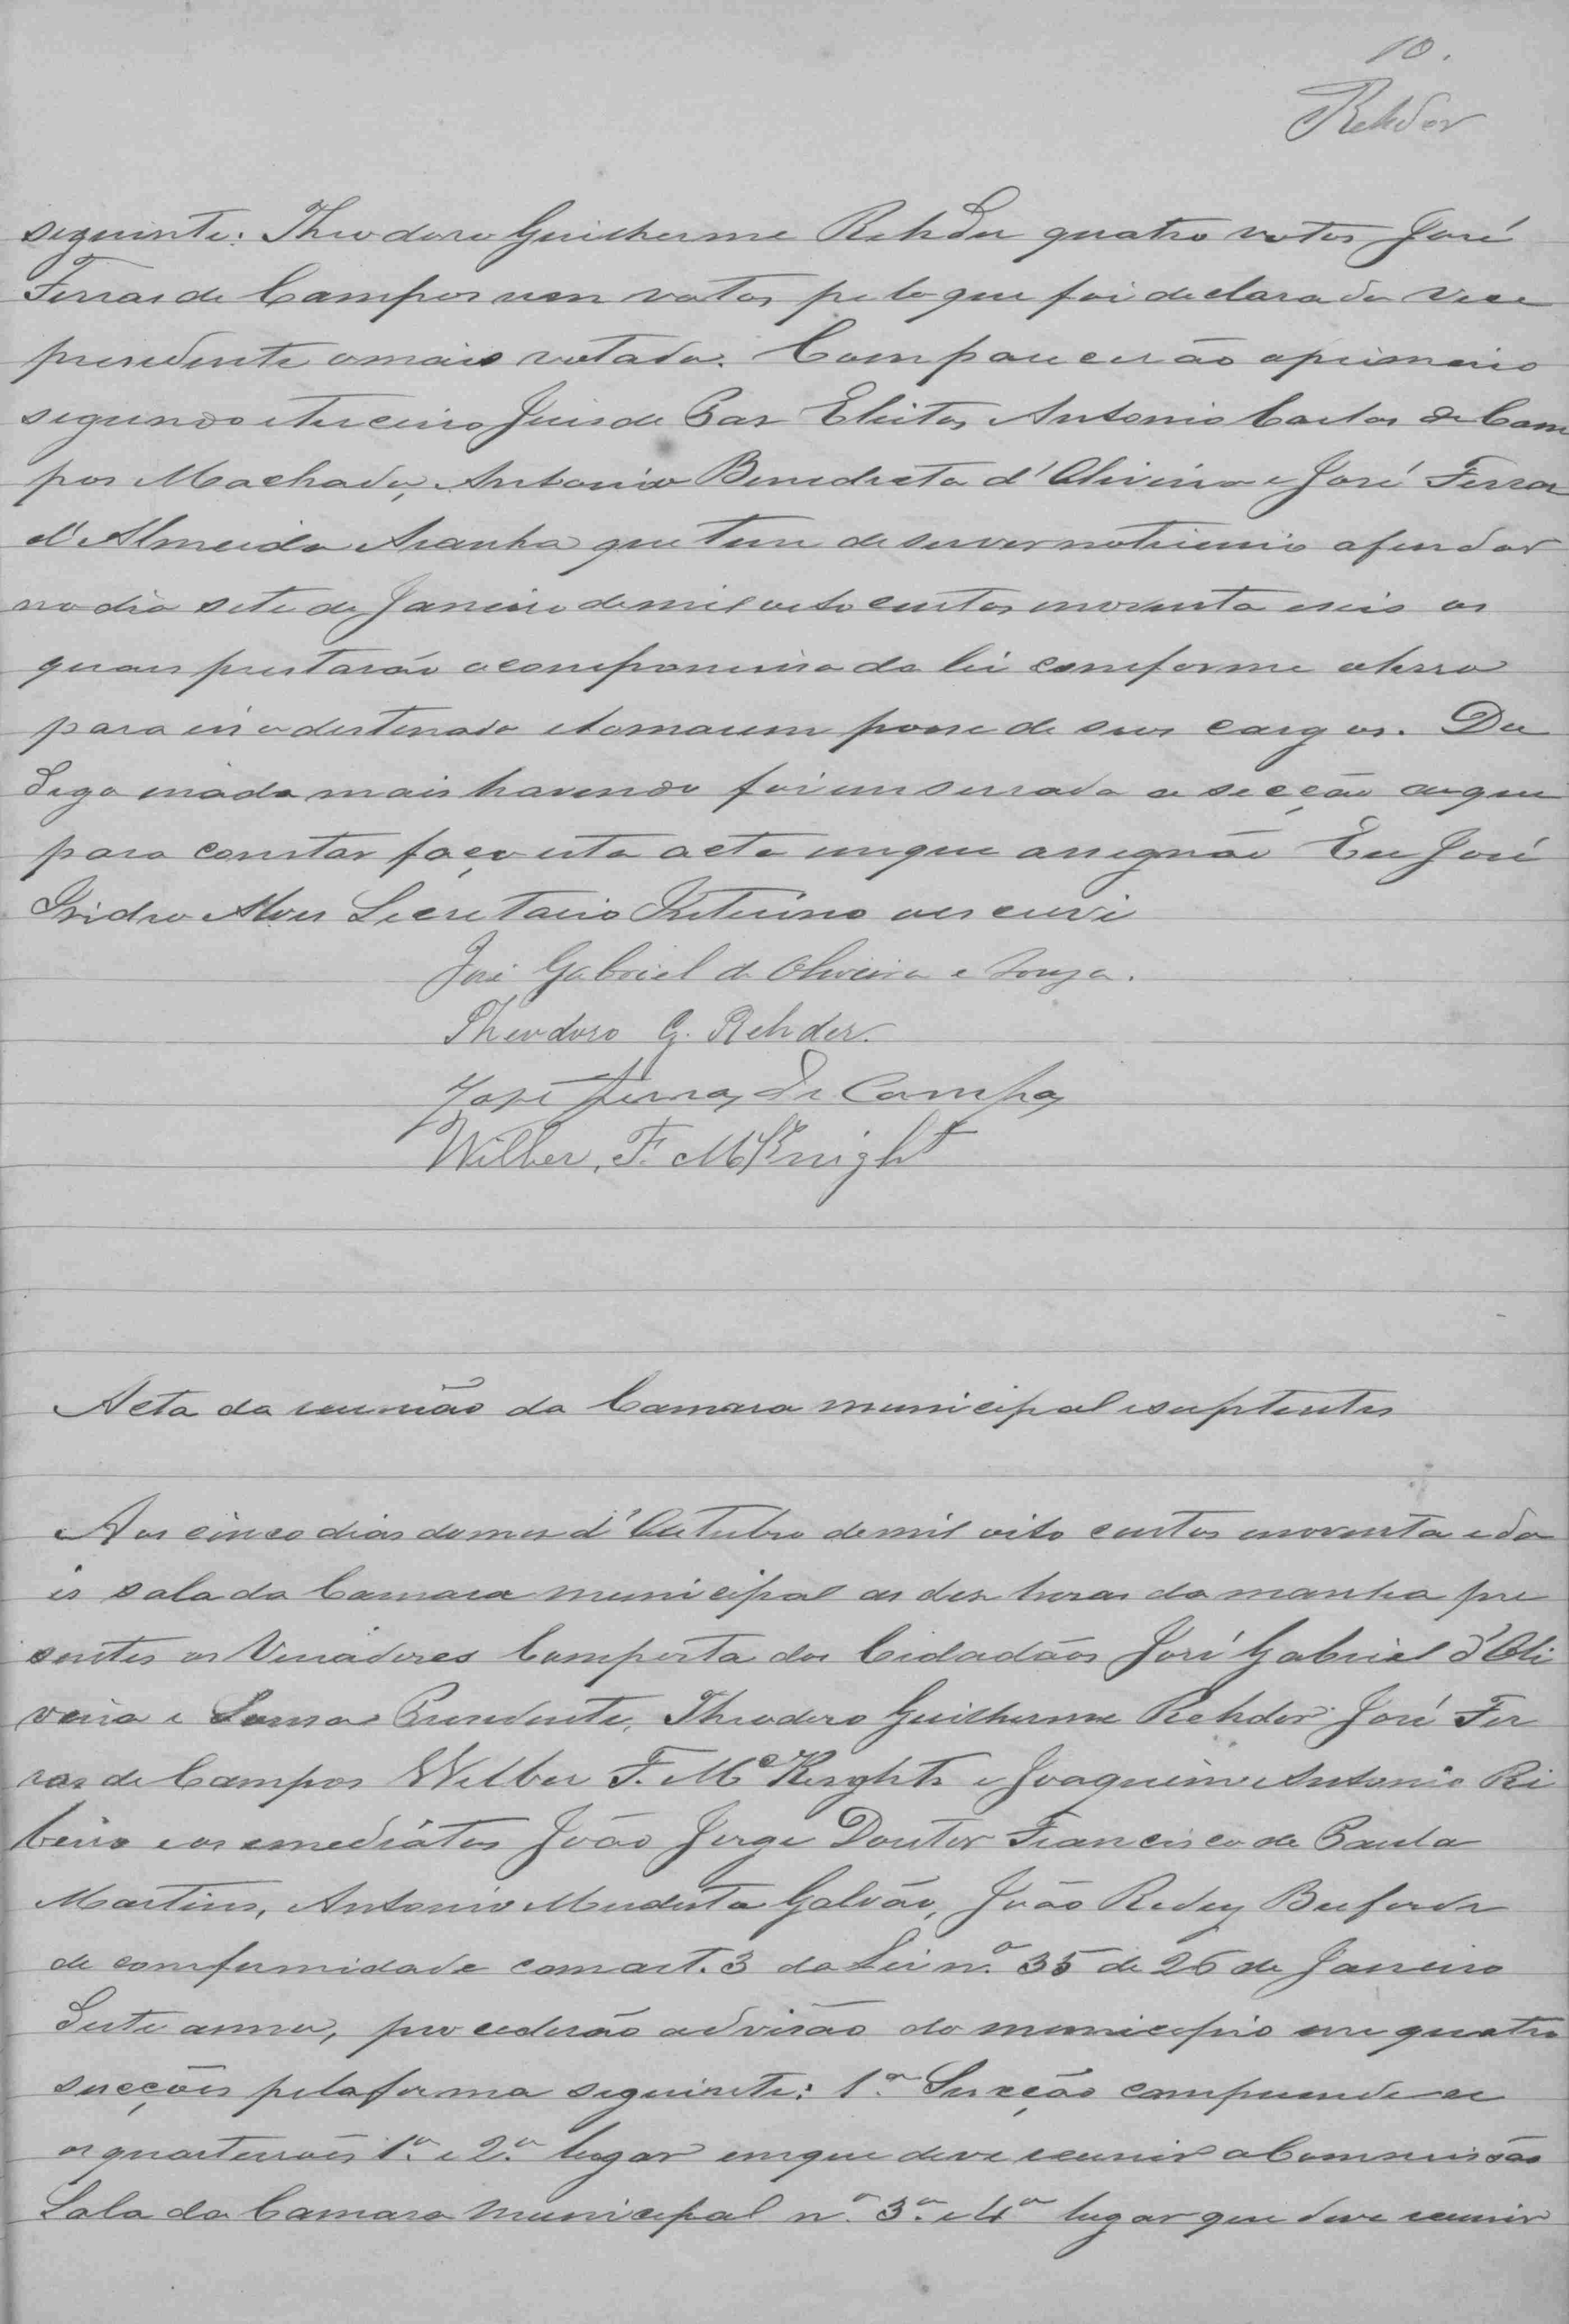 10.
Rehder
seguinte: Theodoro Guilherme Rehder quatro votos José
Ferras de Campos um votos pelo que foi declarado vece
presedente o mais votado. Comparecerão o primeiro
segundo e terceiro Juis de Pas Eleitos Antonio Carlos de Cam
pos Machado, Antonio Benedicto d'Oliveira e José Ferras
d'Almeida Aranha que tem de server no trienio a findar
no dia sete de Janeiro de mil oito centos noventa e seis os
quais prestarão o compromisso da lei comforme o livro
para isso destinado e tomarem posse de seus cargos. De
digo nada mais havendo foi emserrada a secção do que
para constar faço esta acta em que assegnão Eu José
Isidro Alves Secretario Interino o escrevi
José Gabriel de Oliveira e Souza.
Theodoro G. Rehder.
José Ferras de Campos
Wilber. F. McKnight
Acta da reunião da Camara municipal e suptentes
Aos cinco dias do mes d'Outubro de mil oito centos noventa e do
is sala da Camara municipal as des horas da manha pre
sentes os Veriadores Composta dos Cidadãos José Gabriel d'Oli
veira e Sousa Presedente, Theodoro Guilherme Rehder José Fer
ras de Campos Wilber F. Mc Knghts e Joaquim Antonio Ri
beiro e os emediátos João Jorge Doutor Francisco de Paula
Martins, Antonio Modesto Galvão, João Redey Buford
de comformidade com art. 3 da Lei n.o 35 de 26 de Janeiro
deste anno, procederão a devisão do municipio em quatro
secções pela forma seguinte: 1.a Secção comprende
os quarteirões 1.o e 2.o lugar em que deve reunir a Commissão
Sala da Camara Municipal n.o 3.o e 4o lugar que deve reunir